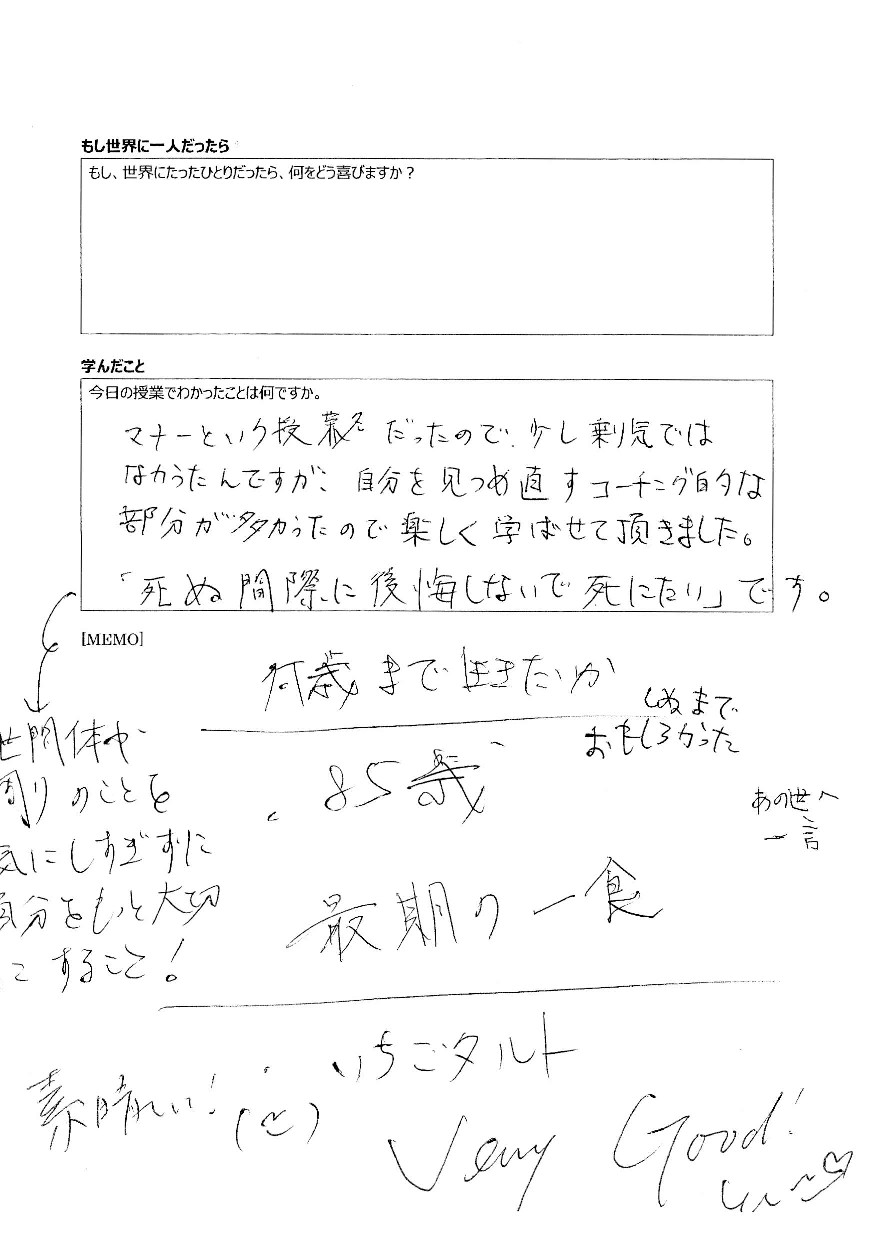 もし世界に一人だったら
もし、世界にたったひとりだったら、何をどう喜びますか？
学んだこと
今日の授業でわかったことは何ですか。
マナーという授業名だったので、少し乗り気では
なかったんですが、自分を見つめ直すコーチング的な
部分が多かったので楽しく学ばせて頂きました。
「死ぬ間際に後悔しないで死にたい」です。
[MEMO]
何歳まで生きたいか
しぬまで
おもしろかった
85歳
あの世へ
一言
世間体や
周りのことを
気にしすぎずに
自分をもっと大切
にすること！
最期の一食
いちごタルト
素晴しい！
Very Good!